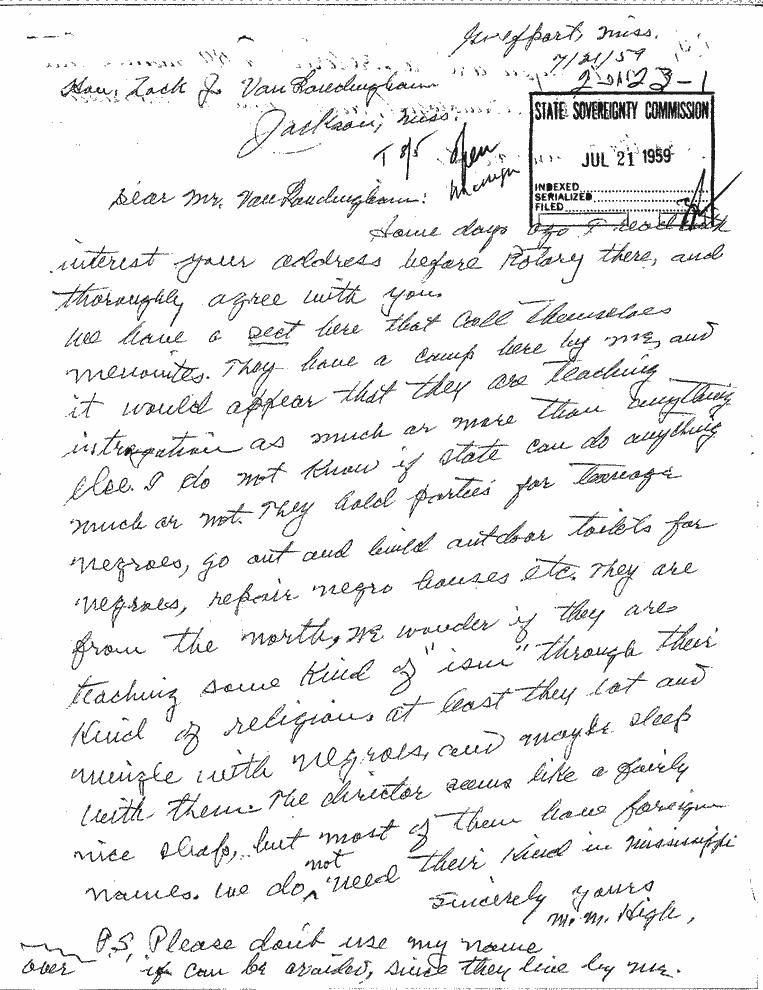 Gulfport, Miss.
7/21/59
Hon. Zack J. VanLandingham
2-0-23-1
Jackson, Miss.
STATE SOVEREIGNTY COMMISSION
JUL 21 1959
INDEXED
SERIALIZED
FILED
open
Dear Mr. VanLandingham:
Some days ago I read with
interest your address before Rotary there, and
thoroughly agree with you.
We have a sect here that call themselves
Menonites. They have a camp here by me, and
it would appear that they are teaching
intregation as much or more than anything
else. I do not know if state can do anything
much or not. They hold parties for teenage
negroes, go out and build outdoor toilets for
negroes, repair negro houses etc. They are
from the north, we wonder if they are
teaching some kind of "ism" through their
kind of religion. at least they eat and
mingle with negroes, and maybe sleep
with them. The director seems like a fairly
nice chap, but most of them have foreign
names. We do not need their kind in Mississippi
Sincerely yours
M. M. High,
P.S. Please don't use my name
over if can be avoided, since they live by me.